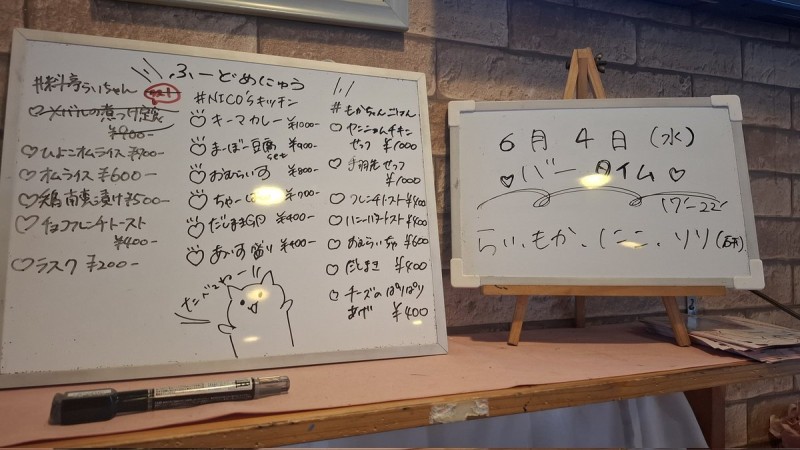 ふーどめにゅう
#料亭らいちゃん
♡メバルの煮つけ定食
¥900-
♡ひよこオムライス ¥700-
♡オムライス ¥600-
♡鶏南蛮漬け ¥500-
♡チョコフレンチトースト
¥400-
♡ラスク ¥200-
#NICO'sキッチン
♡キーマカレー ¥1000-
♡まーぼー豆腐 ¥900-
set
♡おむらいす ¥800-
♡ちゃーはん ¥700-
♡だしまき ¥400-
♡あいす盛り ¥400-
たべてねー!!
#もかちゃんごはん
♡ヤンニョムチキン
せっと ¥1000
♡手羽先せっと
¥1000
♡フレンチトースト ¥400
♡ハニーバタートースト ¥400
♡おむらいす ¥600
♡だしまき ¥400
♡チーズのぱりぱり
あげ ¥400
6月4日(水)
♡バータイム♡
17-22
らい、もか、にこ、リリ